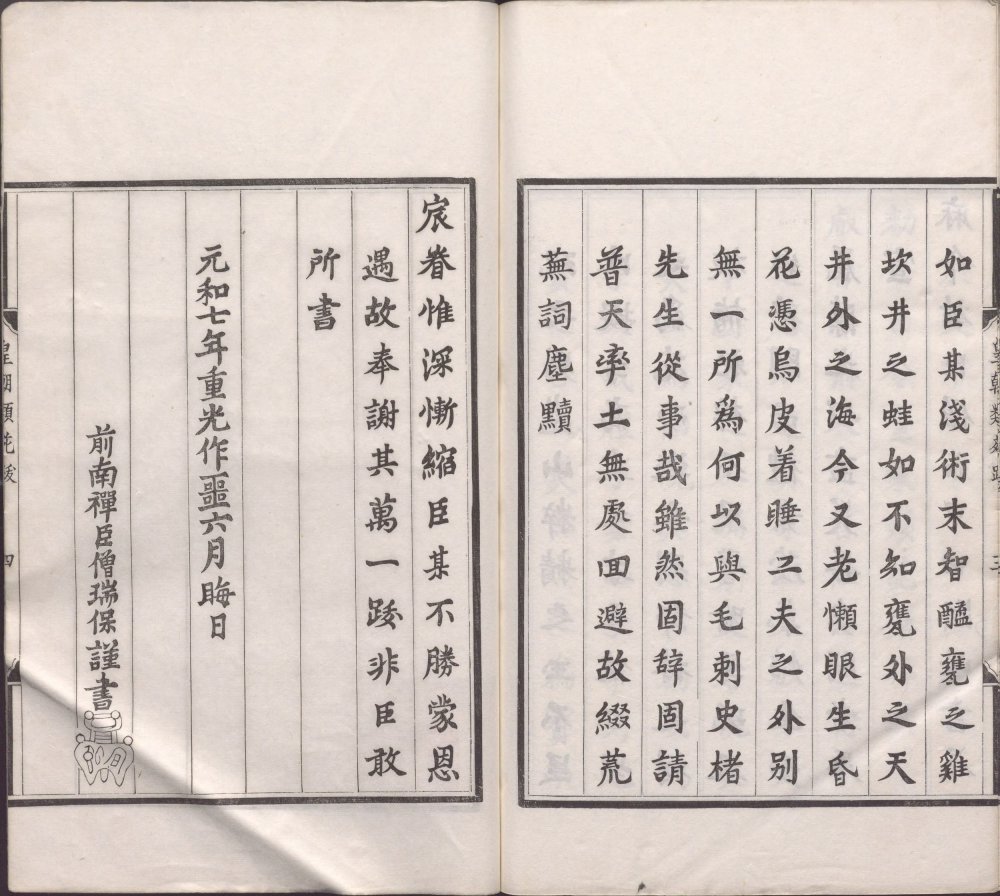 如臣某淺術末智醯甕之雞
坎井之蛙如不知甕外之天
井外之海今又老懶眼生昏
花憑烏皮着睡工夫之外别
無一所爲何以與毛刺史楮
先生從事哉雖然固辞固請
普天率土無處回避故綴荒
蕪詞塵黷
宸眷惟深慚縮臣某不勝蒙恩
遇故奉謝其萬一跋非臣敢
所書
元和七年重光作噩六月晦日
前南禪臣僧瑞保謹書
四